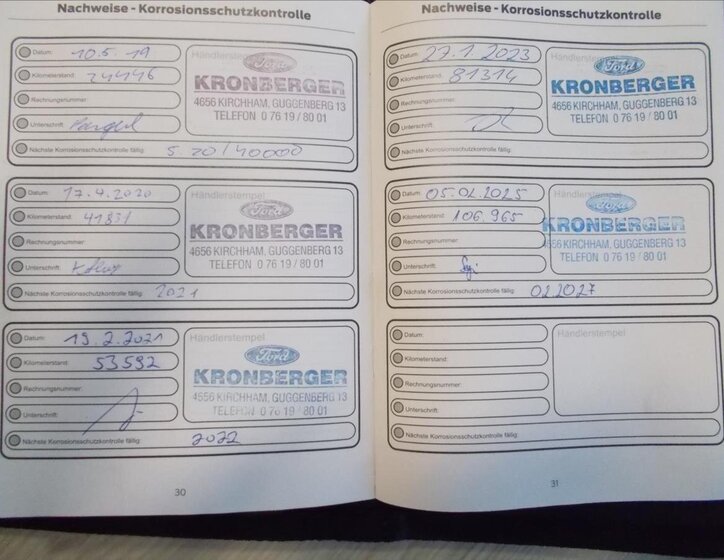 Nachweise - Korrosionsschutzkontrolle
Datum: 10.5.19
Händlerstempel
Ford
Kilometerstand: 24446
KRONBERGER
Rechnungsnummer:
4656 KIRCHHAM, GUGGENBERG 13
TELEFON 0 76 19 / 80 01
Unterschrift:
Nächste Korrosionsschutzkontrolle fällig: 5.20/40000
Datum: 17.4.2020
Händlerstempel
Ford
Kilometerstand: 41831
KRONBERGER
Rechnungsnummer:
4656 KIRCHHAM, GUGGENBERG 13
TELEFON 0 76 19 / 80 01
Unterschrift:
Nächste Korrosionsschutzkontrolle fällig: 2021
Datum: 19.2.2021
Händlerstempel
Ford
Kilometerstand: 53592
KRONBERGER
Rechnungsnummer:
4656 KIRCHHAM, GUGGENBERG 13
TELEFON 0 76 19 / 80 01
Unterschrift:
Nächste Korrosionsschutzkontrolle fällig: 2022
30
Nachweise - Korrosionsschutzkontrolle
Datum: 27.1.2023
Händlerstempel
Ford
Kilometerstand: 81314
KRONBERGER
Rechnungsnummer:
4656 KIRCHHAM, GUGGENBERG 13
TELEFON 0 76 19 / 80 01
Unterschrift:
Nächste Korrosionsschutzkontrolle fällig:
Datum: 05.02.2025
Händlerstempel
Ford
Kilometerstand: 106.965
KRONBERGER
Rechnungsnummer:
4656 KIRCHHAM, GUGGENBERG 13
TELEFON 0 76 19 / 80 01
Unterschrift:
Nächste Korrosionsschutzkontrolle fällig: 02.2027
Datum:
Händlerstempel
Kilometerstand:
Rechnungsnummer:
Unterschrift:
Nächste Korrosionsschutzkontrolle fällig:
31